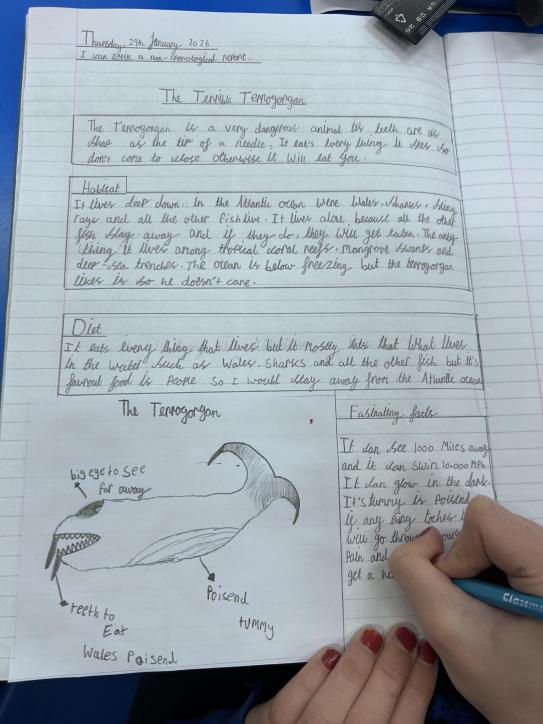 Thursday 29th January 2026
I can write a non-chronological report.
The Terrible Terrogorgan
The Terrogorgan is a very dangerous animal its teeth are as
shap as the tip of a needle. It eats every thing it sees so
don't come to close otherwise it will eat you.
Habitat
It lives deep down in the Atlantic ocean were Wales, sharks, sting
rays and all the other fish live. It lives alone because all the other
fish stay away and if they do, they will get eaten. The only
thing it lives among tropical coral reefs, mangrove swamps and
deep-sea trenches. The ocean is below freezing but the terrogorgan
likes is so he doesn't care.
Diet
It eats every thing that lives but it mostly eats that what lives
in the water such as Wales. Sharks and all the other fish but it's
favourit food is People so I would stay away from the Atlantic ocean
The Terrogorgan
big eye to see
far away
teeth to
Eat
Wales Poisend
Poisend
tummy
Fasinating facts
It can see 1000 Miles away
and it can swim 10,000 MPh
It can glow in the dark
It's tummy is Poisend
if any thing toches
will go through
Pain and
get a
28 29 30
Classma